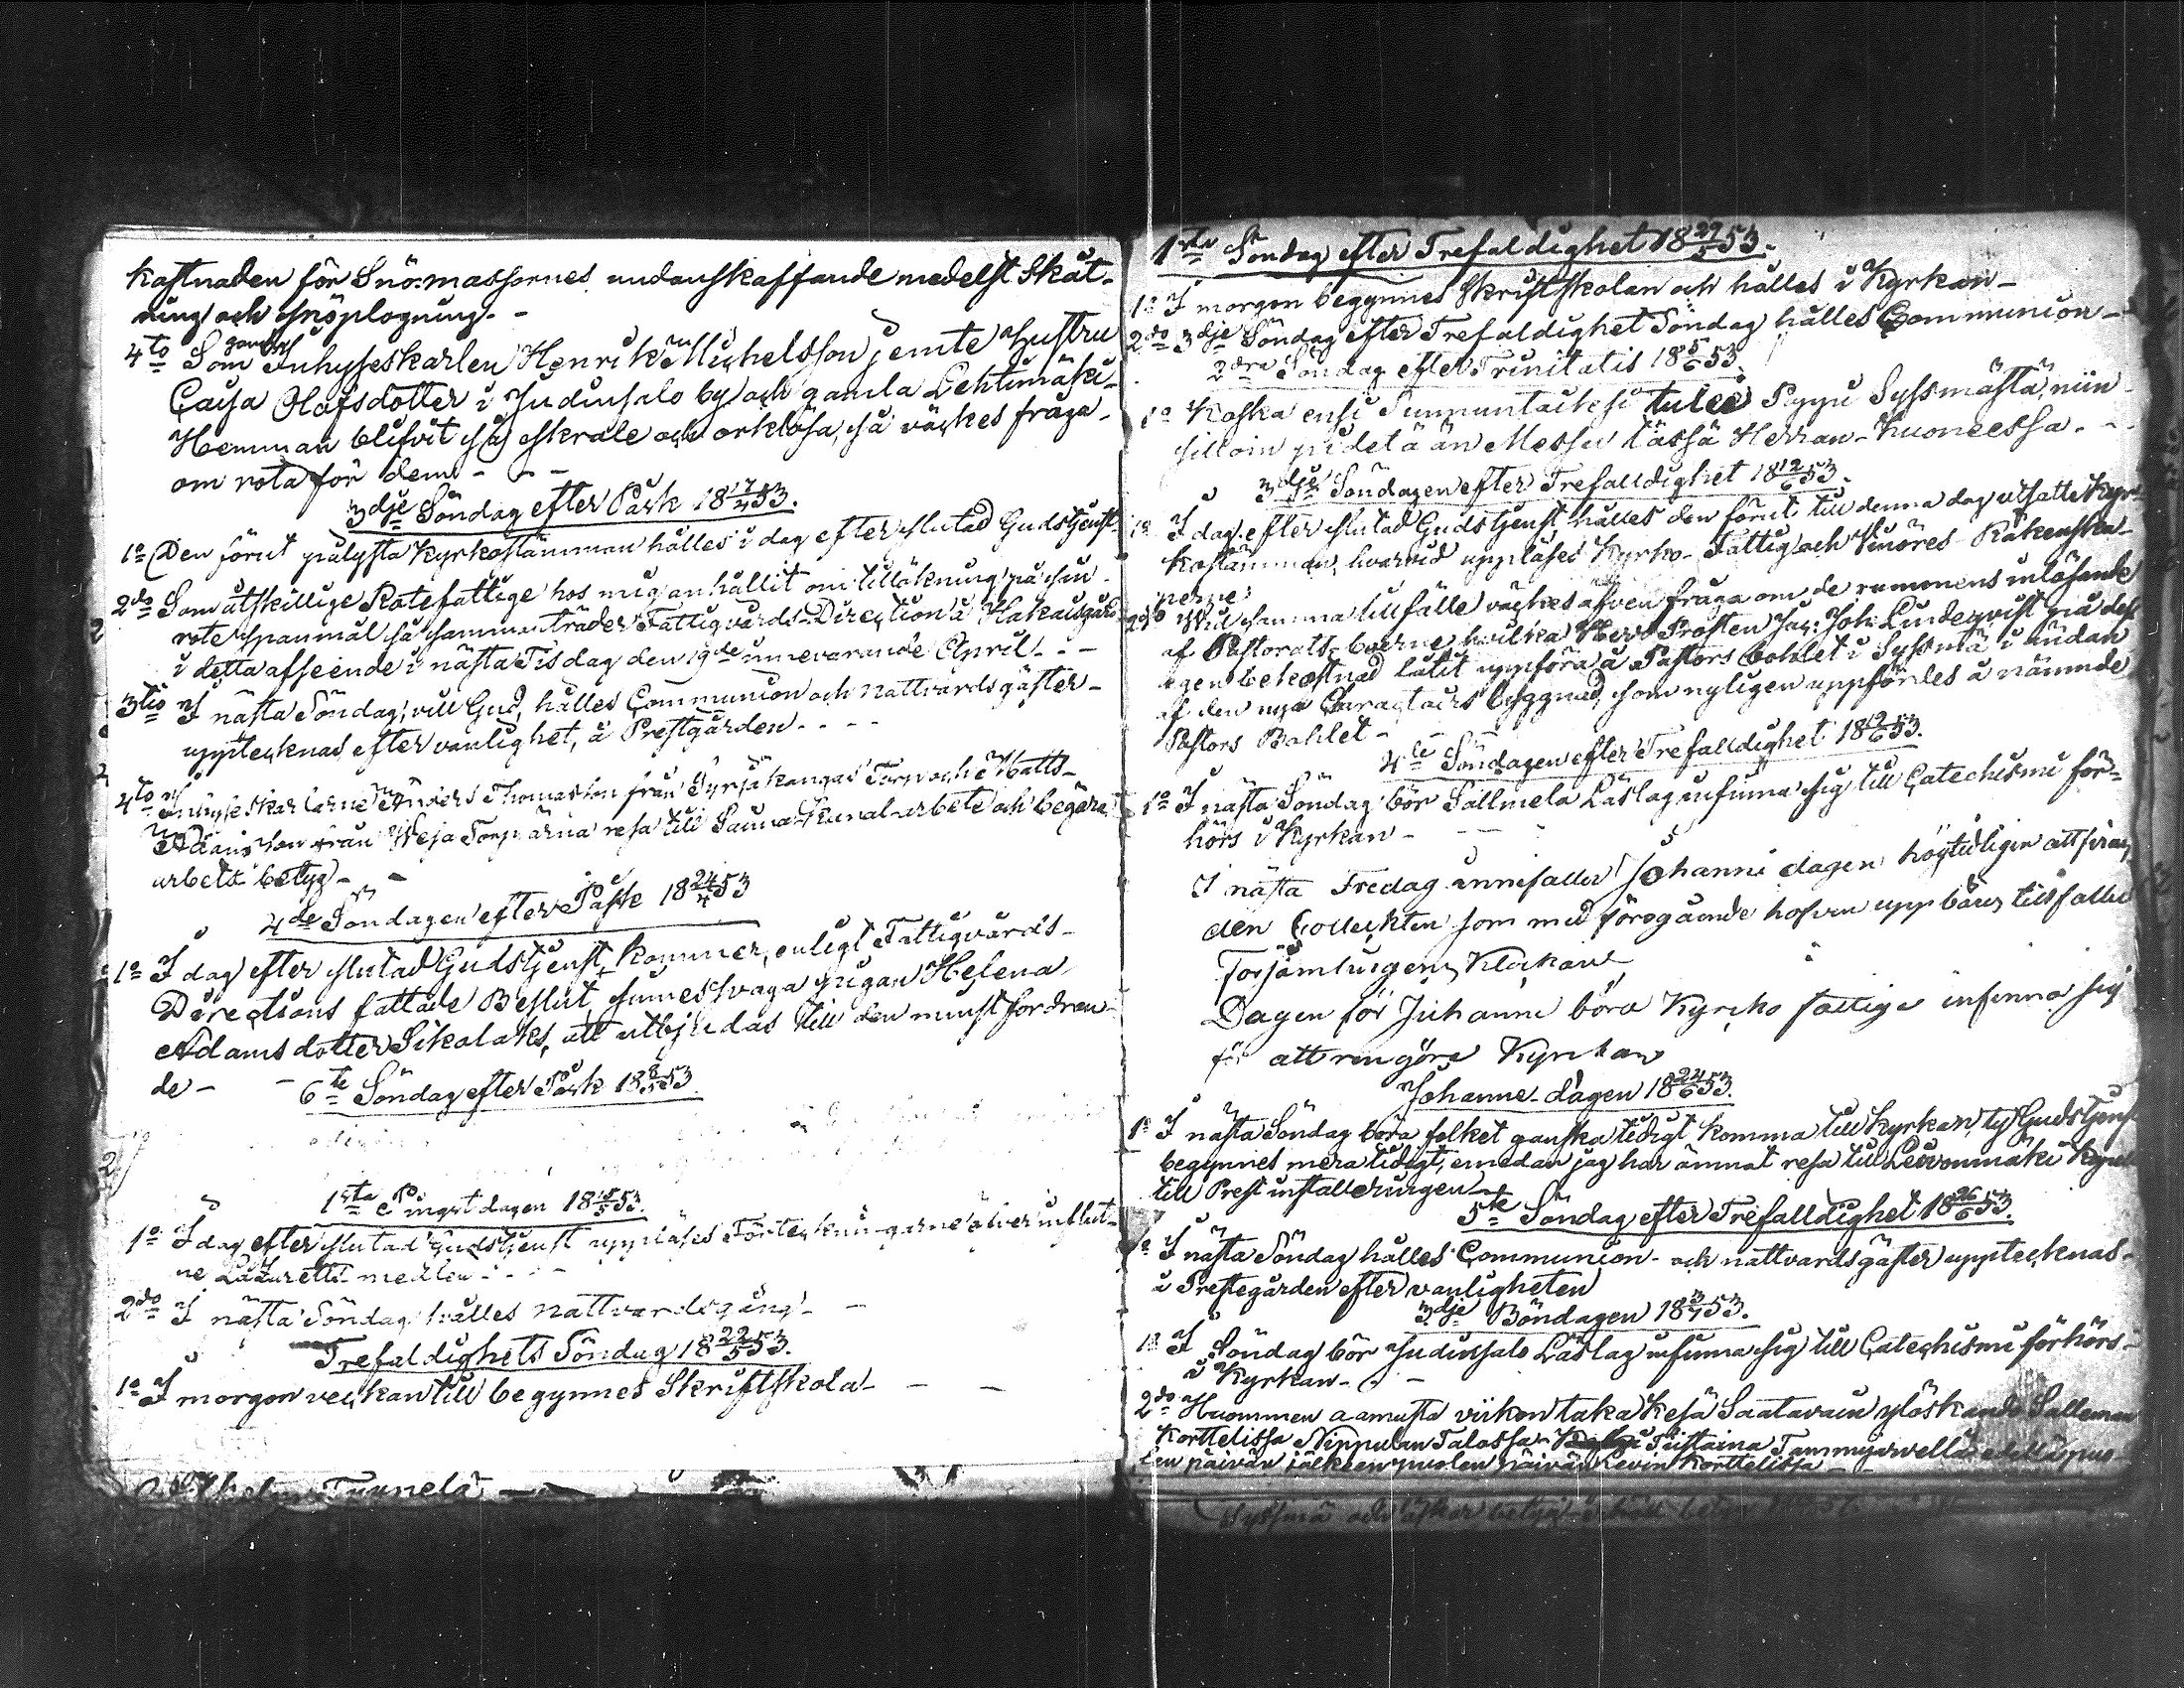 kostnaden för Snö-massornes undanskaffande medelst Skåt-
ning och snöplogning. -
4to Som gamla Inhyseskarlen Henrik Michelsson jemte hustru
Cajsa Olofsdotter i Judinsalo by och gamla Lehtimäki
Hemman blifvit så skrale och orklösa, så väckes fråga
om rota för dem - - -
3dje Söndag efter Påsk 18 17/4 53.
1o Den förut pålysta Kyrkostämman hålles i dag efter slutad Gudstjenst
2do Som åtskillige Rotefattige hos mig anhållit om tillökning på sin
rotespanmål så sammanträder Fattigvårds-Direction å
i detta afseende i nästa Tisdag den 19de innevarande April - -
3tio I nästa Söndag, vill Gud, hålles Communion och nattvardsgäster
upptecknas efter vanlighet, å Prestgården - - - -
4to Inhyseskarlarne Anders Thomasson från Syrjäkangas Torp och Matts
Adamsson från Weja Torp ärna resa till Saima-Kanal-arbete och begära
arbets betyg - -
4de Söndagen efter Påsk 18 24/4 53
1o I dag efter slutad Gudstjenst kommer, enligt Fattigvårds-
Directions fattade Beslut, sinnessvaga pigan Helena
Adamsdotter Sikolaks, att utbjudas till den minst fordran-
de -
6te Söndag efter Påsk 18 8/5 53
1sta Pingstdagen 18 15/5 53.
1o I dag efter slutad Gudstjenst uppläses Förteckningarne öfver influt-
ne Lazaretts-medlen - - - -
2do I nästa Söndag hålles nattvardsgång - -
Trefaldighets Söndag 18 22/5 53.
1o I morgon veckan till begynnes Skriftskola - - -
1sta Söndag efter Trefaldighet 18 29/5 53.
1o I morgon begynnes Skriftskolan och hålles i Kyrkan -
2do 3dje Söndag efter Trefaldighet Söndag hålles Communion -
2dra Söndag efter Trinitatis 18 5/6 53.
1o Koska ensi Sunnuntaiksi tulee Pyyu Syssmästä, niin
silloin pidetään Messu tässä Herran-huoneessa - -
3dje Söndagen efter Trefalldighet 18 12/6 53.
1o I dag efter slutad Gudstjenst hålles den förut till denna dag utsatte Kyr-
kostämman, hvarvid uppläses Kyrko- Fattig och Räkenska-
perne
2do Wid samma tillfälle väckes äfven fråga om de rummens inlösande
af Pastorats-boerne, hvilka Herr Prosten Jac: Joh: Lindeqvist på dess
egen bekostnad låtit uppföra å Pastors bohlet i Syssmä i ändan
af den nya Caractairs byggnad, som nyligen uppfördes å nämnde
Pastors Bohlet -
4de Söndagen efter Trefalldighet 18 19/6 53.
1o I nästa Söndag bör Sallmela Läslag infinna sig till Catechismi för-
hörs i Kyrkan -
I nästa Fredag innefaller Johanni dagen högtidligen att firas,
den Collekten som med föregående hofven uppbäres tillfaller
Församlingens Klockare
Dagen för Juhanni böra Kyrcko fattige infinna sig
för att rengöra Kyrckan
Johanne-dagen 18 24/6 53.
1o I nästa Söndag böra folket ganska tidigt komma till Kyrkan, ty Gudstjenst
begynnes mera tidigt, emedan jag har ämnat resa till Leivonmäki
till Prest installeringen
5te Söndag efter Trefalldighet 18 26/6 53.
1o I nästa Söndag hålles Communion - och nattvardsgäster upptecknas
å Prestegården efter vanligheten
3dje Böndagen 18 3/7 53.
1o I Söndag bör Judinsalo Läslag infinna sig till Catechismi förhörs
i Kyrkan - -
2do Huommen aamusta viikon taka Kesä Saatavain ylöskando Salleman
Korttelissa Nippulan Talossa Tiistaina Tammijärwellä edellä puo-
len päivän jälkeen puolen päivän Levin Korttelissa -